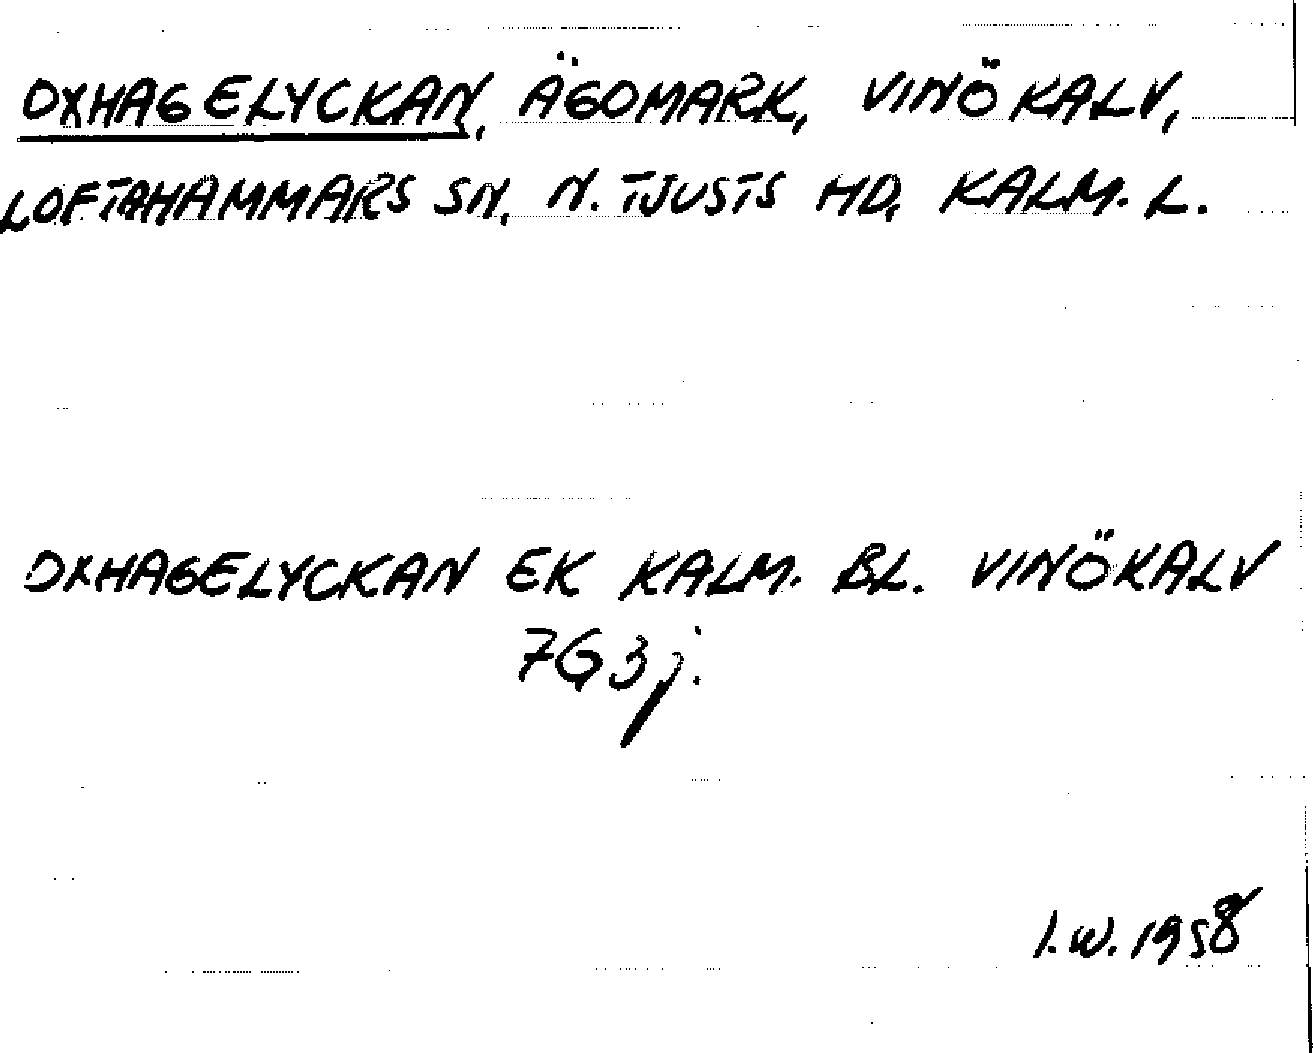 OXHAGELYCKAN, ÄGOMARK, VINÖKALV,
LOFTAHAMMARS SN, N. TJUSTS HD, KALM. L.
OXHAGELYCKAN EK KALM. BL. VINÖKALV
7G3j.
I.W. 1958